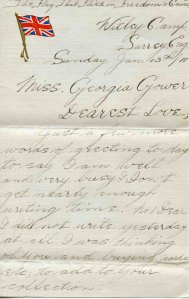 The Flag That Flies in Freedom's Cause
Witley Camp
Surrey Eng
Sunday Jan 13th/18
Miss. Georgia Gower
Dearest Love,
Just a few more
words of greeting to day
to say I am well
and very busy. Don't
get nearly enough
writing time. No Dear
I did not write yesterday
at all. I was thinking
of you and buying
to add to your
collection.